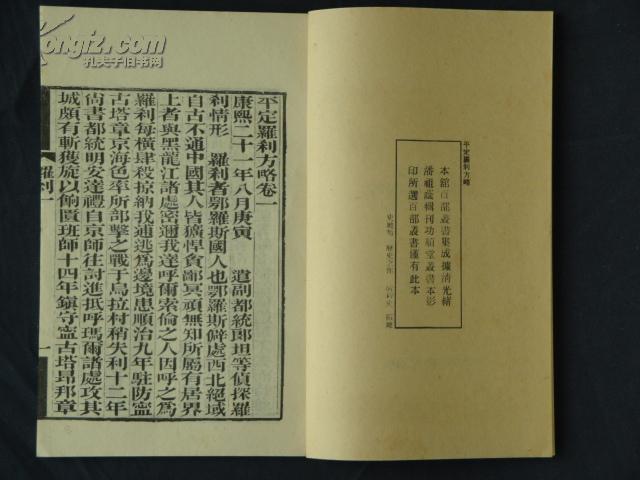 平定羅刹方略
本館百部叢書集成據清光緒
潘祖蔭輯刊功順堂叢書本影
印所選百部叢書僅有此本
平定羅刹方略卷一
康熙二十一年八月庚寅 遣副都統郎坦等偵探羅
刹情形 羅刹者鄂羅斯國人也鄂羅斯僻處西北絕域
自古不通中國其人皆獷悍貪鄙冥頑無知所屬有居界
上者與黑龍江諸處密邇我達呼爾索倫之人因呼之爲
羅刹每橫肆殺掠納我逋逃爲邊境患順治九年駐防寧
古塔章京海色率所部擊之戰于烏拉村稍失利十二年
尚書都統明安達禮自京師往討進抵呼瑪爾諸處攻其
城頗有斬獲旋以餉匱班師十四年鎮守寧古塔昂邦章
羅刹一
一
Kongfz.com
孔夫子旧书网